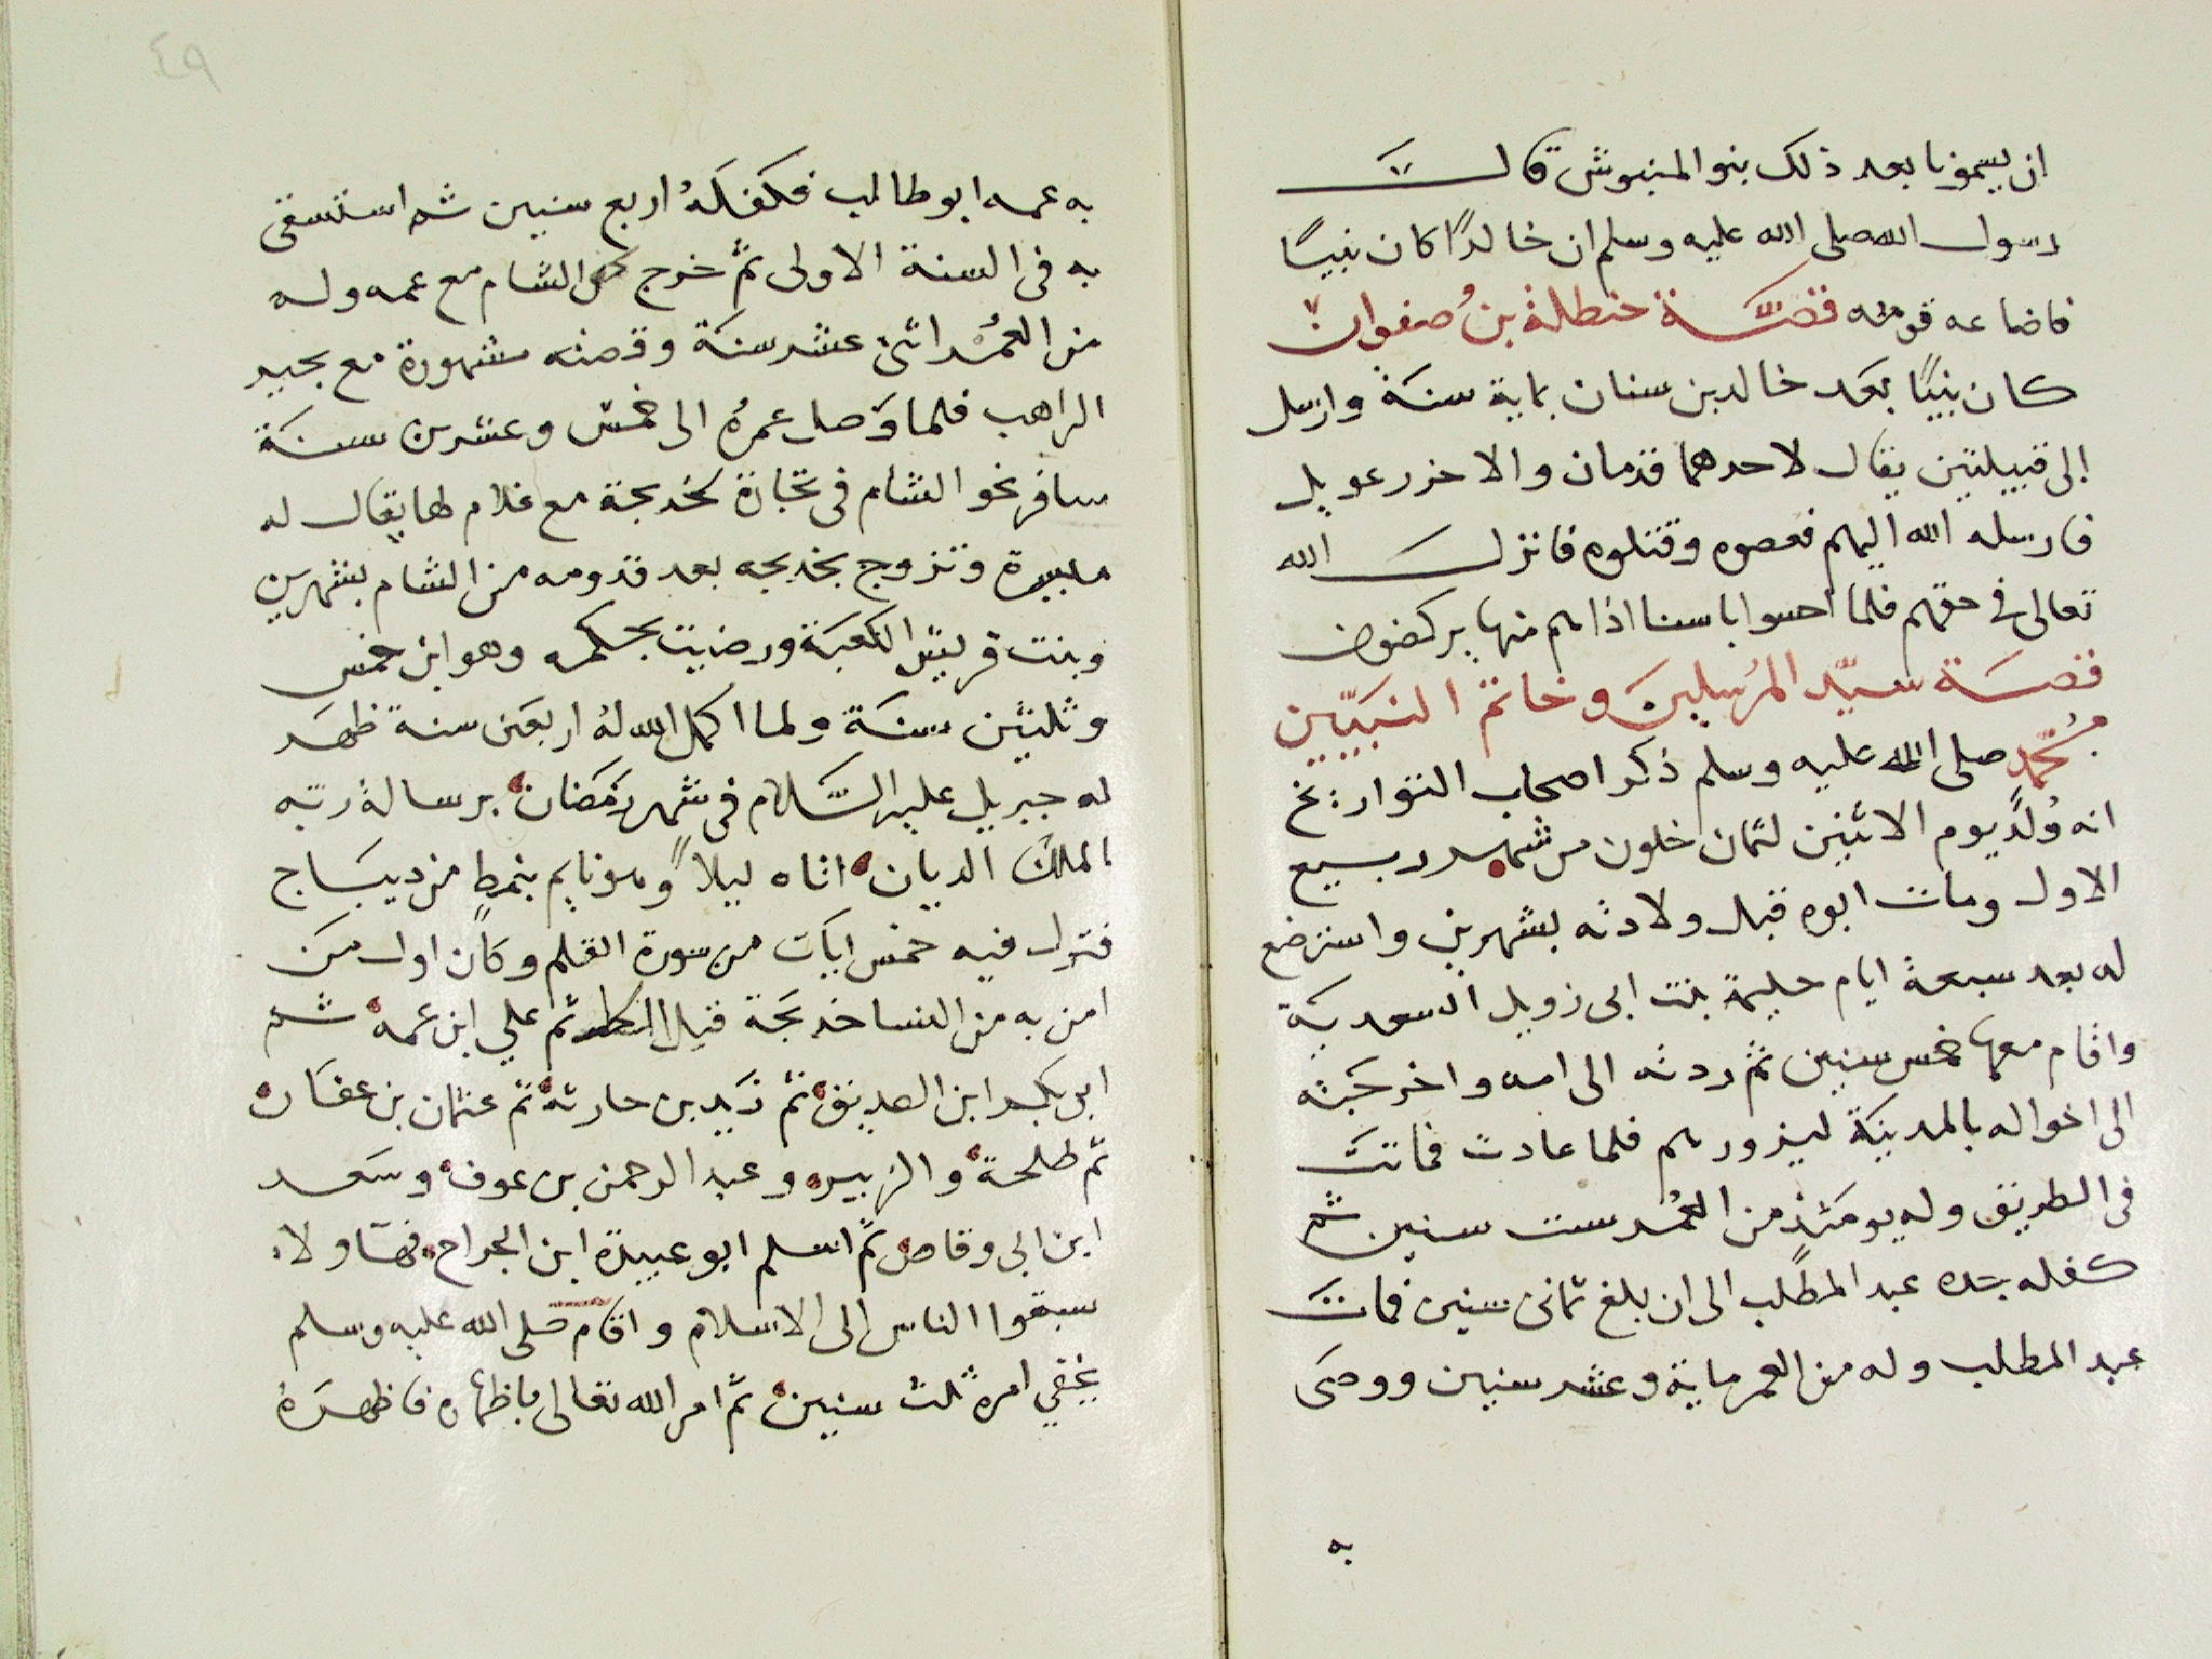 ان يسمونا بعد ذلك بنو المنبوش قالت
رسول الله صلى الله عليه وسلم ان خالدًا كان نبيًا
فاضاعه قومه قصة حنظلة بن صفوان
كان نبيًا بعد خالد بن سنان بماية سنة وارسل
الى قبيلتين يقال لاحدهما قدمان والاخر رعويل
فارسله الله اليهم فعصوه وقتلوه فانزل الله
تعالى في حقهم فلما احسوا باسنا اذا هم منها يركضون
قصة سيّد المرسلين وخاتم النبيّين
محمد صلى الله عليه وسلم ذكر اصحاب التواريخ
انه وُلد يوم الاثنين لثمان خلون من شهر ربيع
الاول ومات ابوه قبل ولادته بشهرين واسترضع
له بعد سبعة ايام حليمة بنت ابى زويل السعدية
واقام معها خمس سنين ثم ردته الى امه واخرجته
الى اخواله بالمدينة ليزورهم فلما عادت فماتت
فى الطريق وله يومئذ من العمر ست سنين ثم
كفله جده عبد المطلب الى ان بلغ ثمانى سنين فمات
عبد المطلب وله من العمر ماية وعشر سنين ووصى
به
٤٩
به عمه ابو طالب فكفله اربع سنين ثم استسقى
به فى السنة الاولى ثم خرج الى الشام مع عمه وله
من العمر اثنى عشر سنة وقصته مشهورة مع بحير
الراهب فلما وصل عمره الى خمس وعشرين سنة
سافر نحو الشام فى تجارة لخديجة مع غلام لها يقال له
ميسرة وتزوج بخديجه بعد قدومه من الشام بشهرين
وبنت قريش الكعبة ورضيت بحكمه وهو ابن خمس
وثلثين سنة ولما اكمل الله له اربعين سنة ظهر
له جبريل عليه السلام فى شهر رمضان برسالة ربه
الملك الديان اتاه ليلاً وهو نايم بنمط من ديباج
فنزل فيه خمس ايات من سورة القلم وكان اول من
امن به من النسا خديجة قبل ثم علي ابن عمه ثم
ابى بكر ابن الصديق ثم زيد بن حارثة ثم عثمان بن عفان
ثم طلحة والزبير وعبد الرحمن بن عوف وسعد
ابن ابى وقاص ثم اسلم ابو عبيدة ابن الجراح فهاولاء
سبقوا الناس الى الاسلام واقام صلى الله عليه وسلم
يخفي امره ثلث سنين ثم امر الله تعالى باظهاره فاظهره